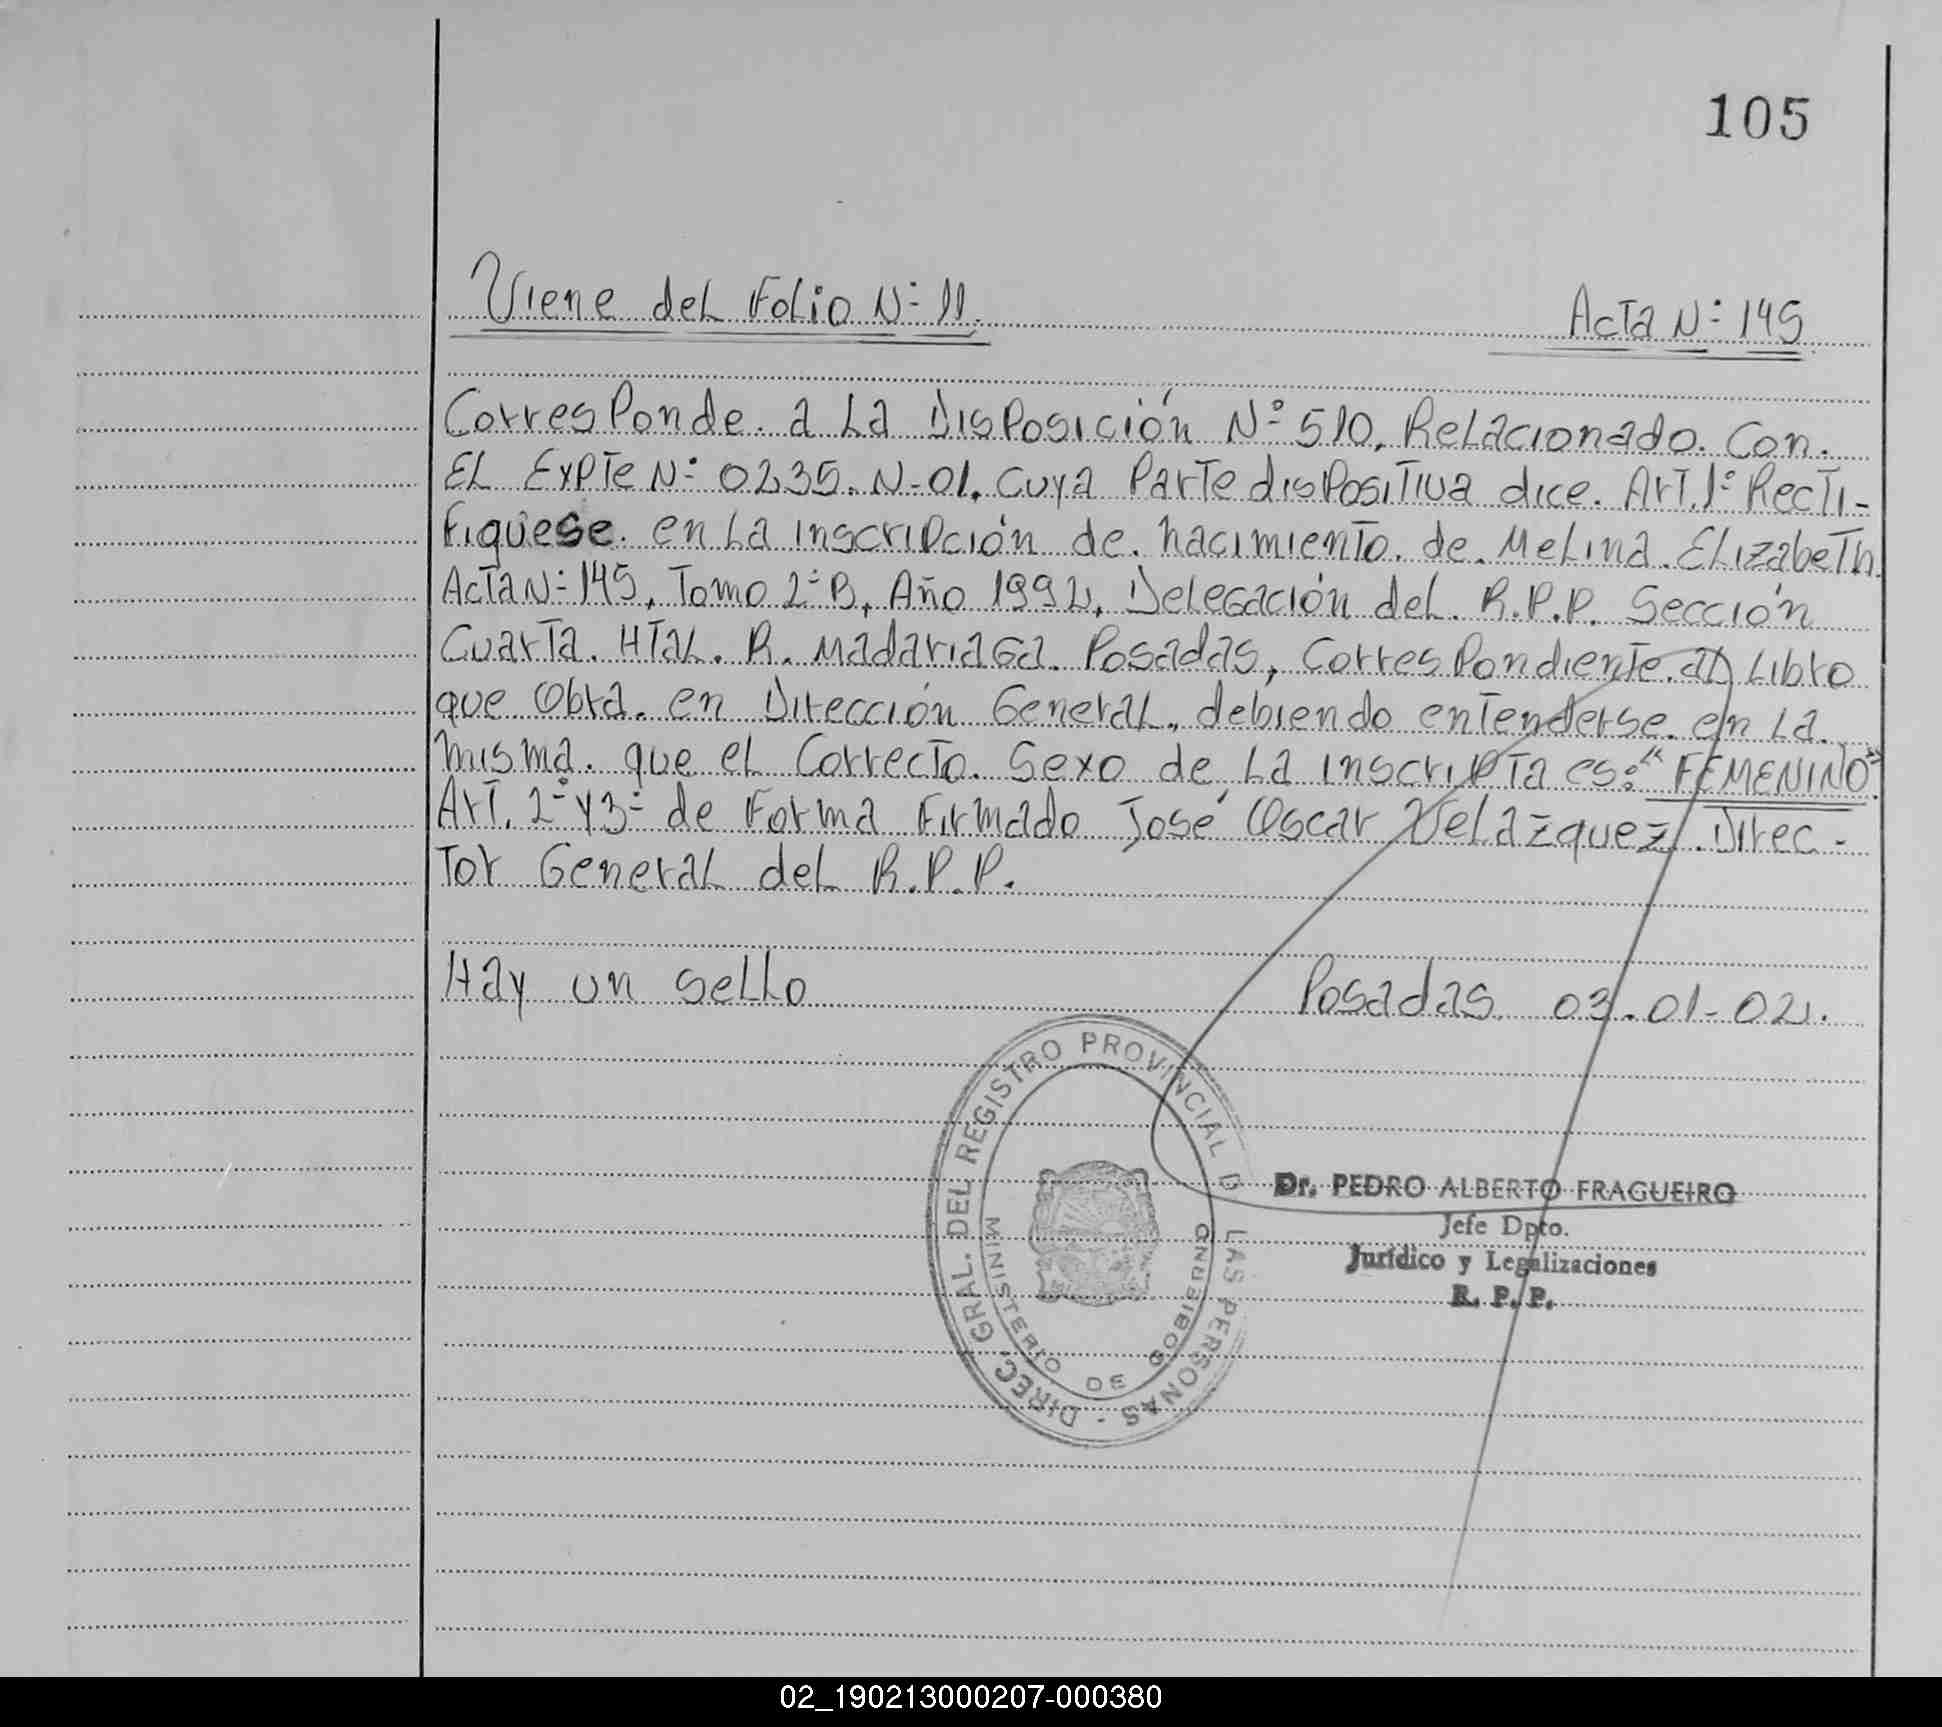 105
Viene del Folio N: 11.
Acta N: 145
Corresponde. a la Disposición N° 510. Relacionado. Con.
El Expte N: 0235. N-01. Cuya Parte dispositiva dice. Art. 1° Recti-
fíquese. en la inscripción de. nacimiento. de. Melina. Elizabeth.
Acta N: 145, Tomo 2° B, Año 1992, Delegación del. R.P.P. Sección
Cuarta. Htal. R. Madariaga. Posadas, Correspondiente. al Libro
que obra. en Dirección General, debiendo entenderse. en la.
misma. que el Correcto. Sexo de la inscripta es: "FEMENINO".
Art. 2° y 3° de Forma Firmado José Oscar Velázquez. Direc-
tor General del R.P.P.
Hay un sello
Posadas 03-01-02.
DIREC. GRAL. DEL REGISTRO PROVINCIAL D LAS PERSONAS -
MINISTERIO DE GOBIERNO
Dr. PEDRO ALBERTO FRAGUEIRO
Jefe Dpto.
Jurídico y Legalizaciones
R. P. P.
02_190213000207-000380